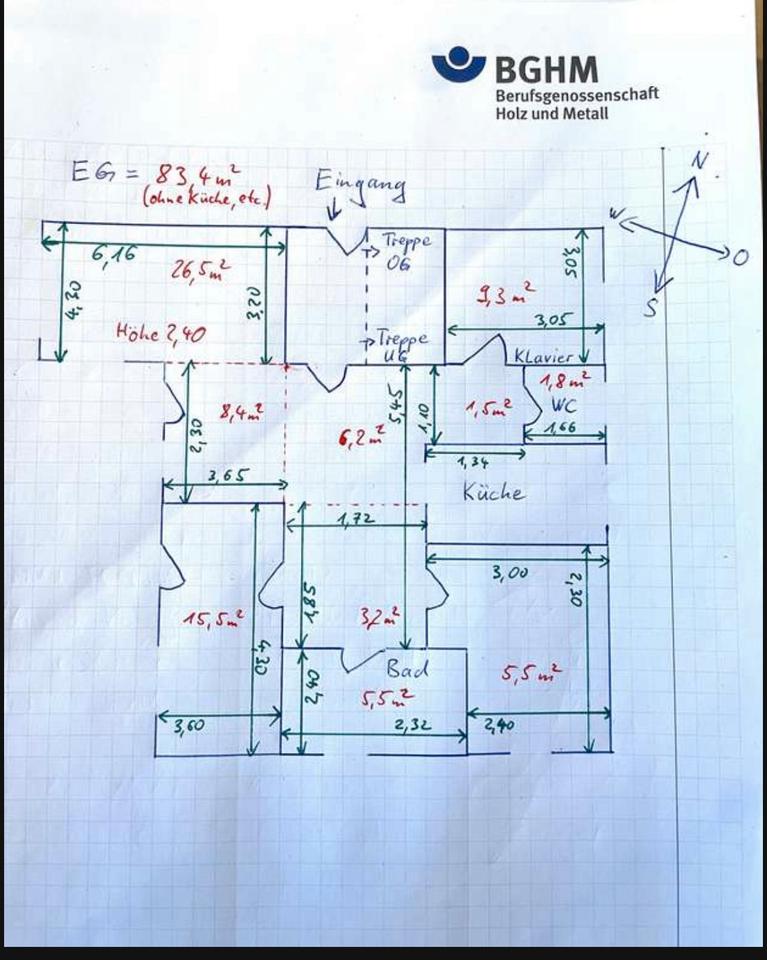 BGHM
Berufsgenossenschaft
Holz und Metall
EG = 83,4 m²
(ohne Küche, etc.)
Eingang
N
W
O
S
6,16
26,5 m²
4,30
3,20
Höhe 2,40
Treppe
OG
Treppe
UG
9,3 m²
3,05
3,05
Klavier
8,4 m²
2,30
3,65
6,2 m²
5,45
1,10
1,5 m²
1,34
1,8 m²
WC
1,66
Küche
1,72
3,00
2,30
15,5 m²
4,30
3,60
1,85
3,2 m²
Bad
5,5 m²
2,40
2,32
5,5 m²
2,40